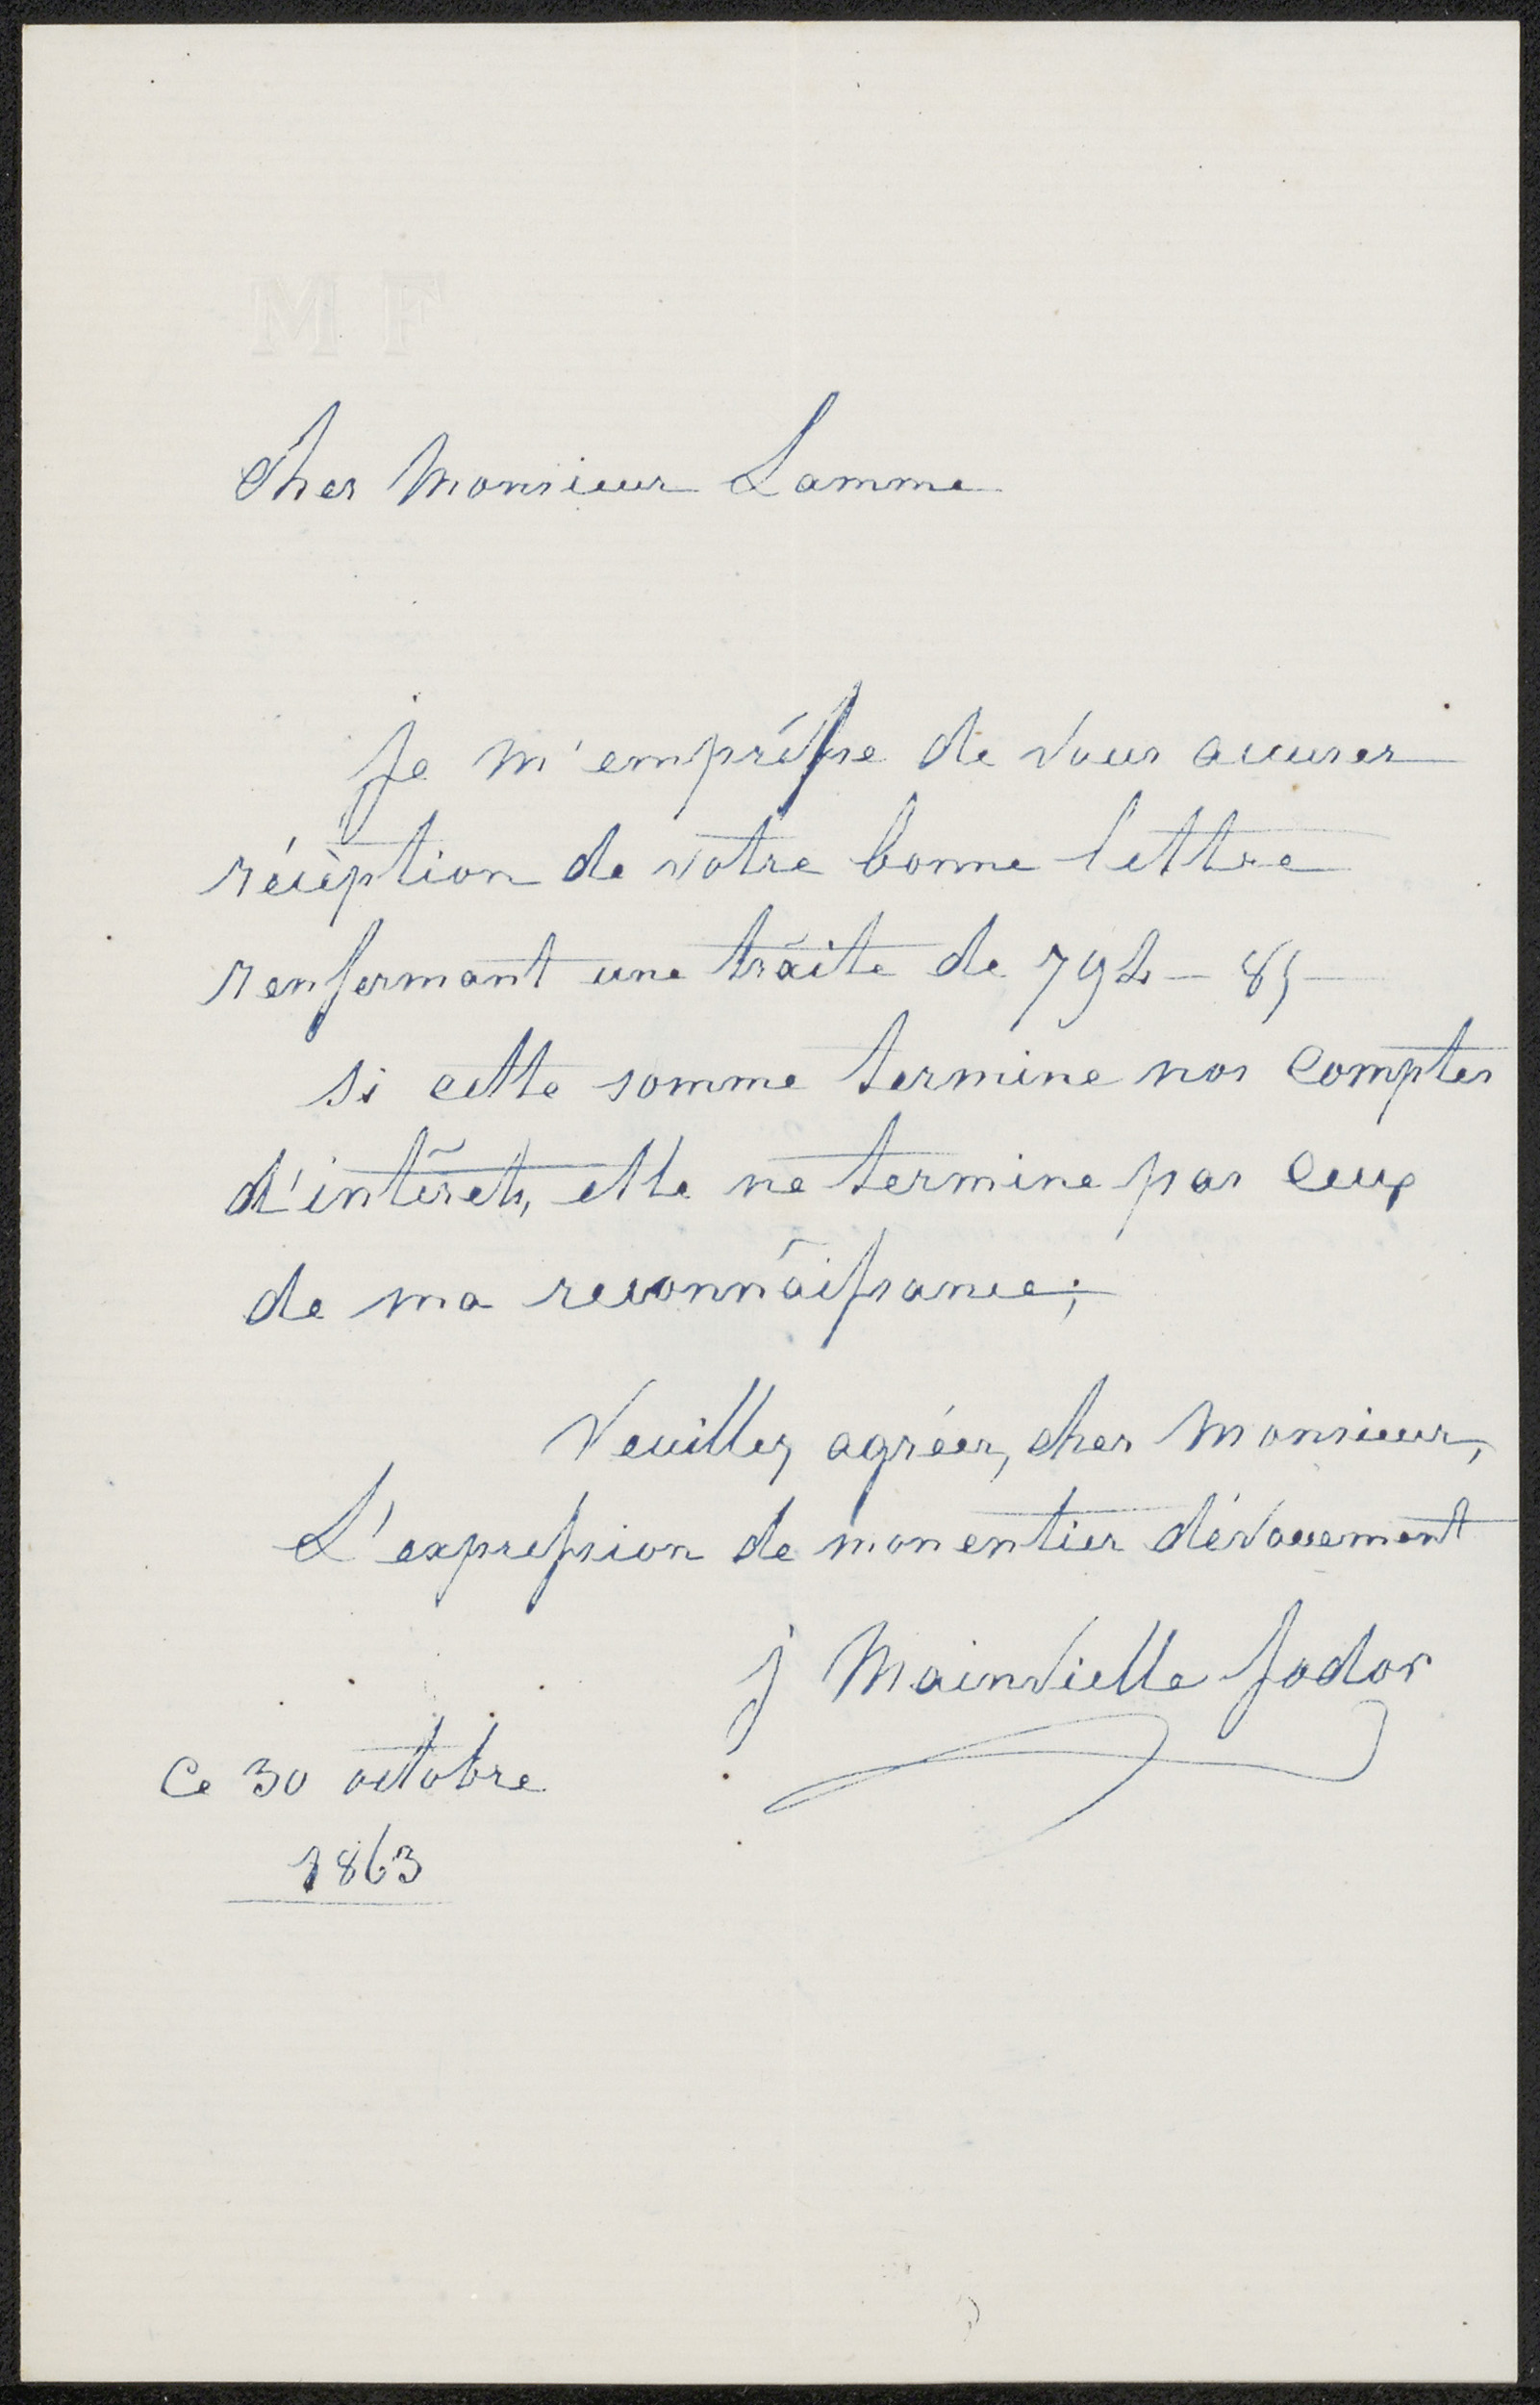 M F
Cher Monsieur Lamme
Je m'emprésse de vous accuser
récèption de votre bonne lettre
renfermant une traite de 792 – 85 –
si cette somme termine nos comptes
d'intérets, elle ne termine pas ceux
de ma reconnaissance;
Veuillez agréer, cher Monsieur,
L'expression de mon entier dévouement
j Mainvielle fodor
Ce 30 octobre
1863